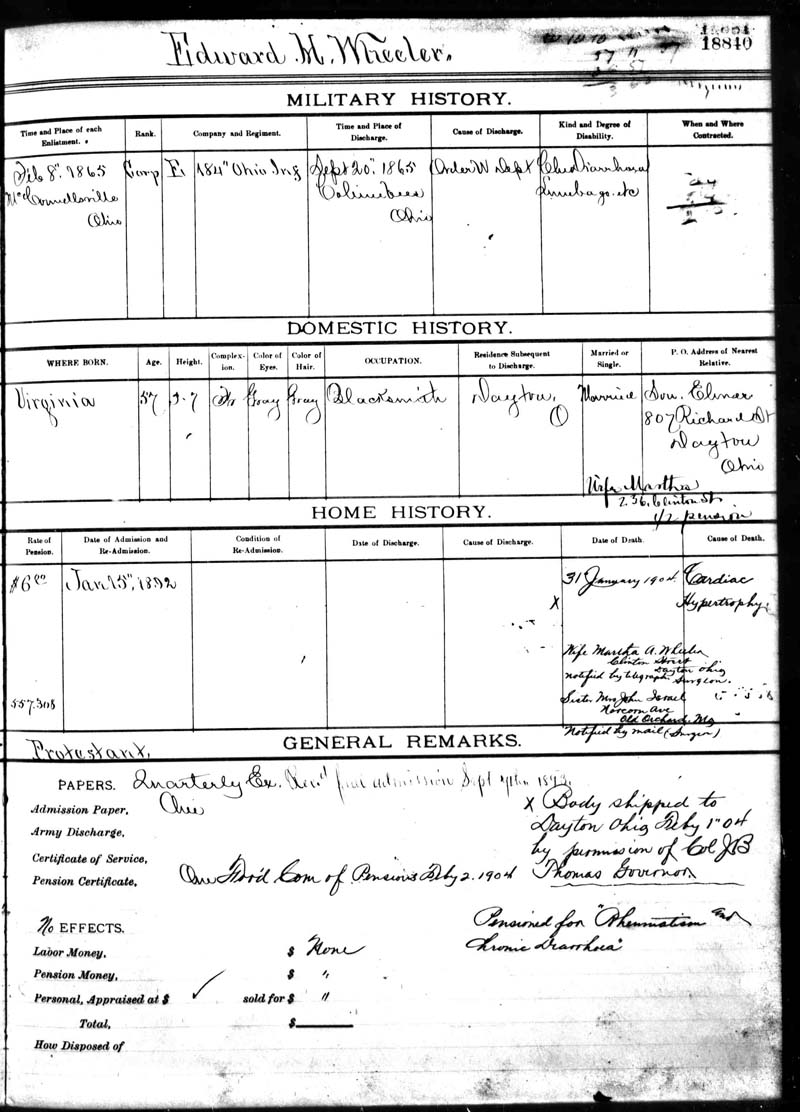 18840
Edward H. Wheeler.
MILITARY HISTORY.
Time and Place of each Enlistment.
Rank.
Company and Regiment.
Time and Place of Discharge.
Cause of Discharge.
Kind and Degree of Disability.
When and Where Contracted.
Feb 8", 1865
McConnellsville
Ohio
Corp
E,
184" Ohio Inf
Sept 20", 1865
Columbus
Ohio
Order W Dept
Diarrhoea
Lumbago etc
DOMESTIC HISTORY.
WHERE BORN.
Age.
Height.
Complexion.
Color of Eyes.
Color of Hair.
OCCUPATION.
Residence Subsequent to Discharge.
Married or Single.
P. O. Address of Nearest Relative.
Virginia
57
5-7
Gray
Gray
Blacksmith
Dayton,
O
Married
Son. Elmer
807 Richard St
Dayton
Ohio
Wife Martha
236 Clinton St
1/2 pension
HOME HISTORY.
Rate of Pension.
Date of Admission and Re-Admission.
Condition of Re-Admission.
Date of Discharge.
Cause of Discharge.
Date of Death.
Cause of Death.
$6 00
Jan 15", 1892
31 January 1904.
X
Cardiac
Hypertrophy.
Wife Martha A. Wheeler
Clinton Street
Dayton Ohio
notified by telegraph Surgeon.
557.308
Sister Mrs John Israel
Ave
Old Orchard. Mo
Notified by mail (Surgeon)
Protestant.
GENERAL REMARKS.
PAPERS. Quarterly Ex. admission Sept
Admission Paper, One
Army Discharge,
Certificate of Service,
Pension Certificate, One Com of Pensions Feby 2. 1904
X Body shipped to
Dayton Ohio Feby 1" 04
by permission of Col JB
Thomas Governor
No EFFECTS.
Pensioned for "Rheumatism and
Chronic Diarrhoea"
Labor Money, $ None
Pension Money, $ "
Personal, Appraised at $ ✓ sold for $ "
Total, $
How Disposed of